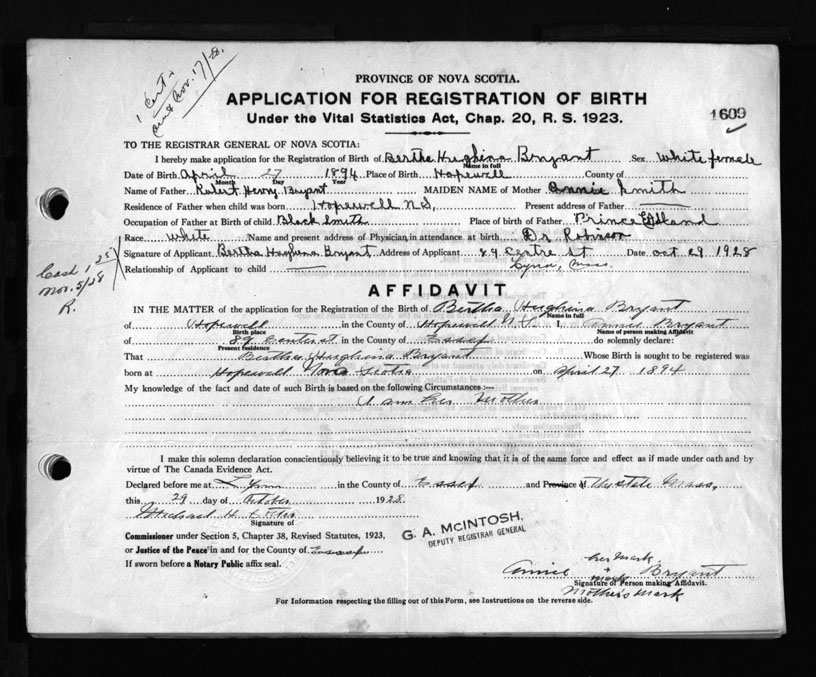 1 Cert.
Nov. 17/28.
PROVINCE OF NOVA SCOTIA.
APPLICATION FOR REGISTRATION OF BIRTH
Under the Vital Statistics Act, Chap. 20, R. S. 1923.
1609
TO THE REGISTRAR GENERAL OF NOVA SCOTIA:
I hereby make application for the Registration of Birth of Bertha Hughina Bryant Sex White female
Name in full
Date of Birth April 27 1894 Place of Birth Hopewell County of
Month Day Year
Name of Father Robert Henry Bryant MAIDEN NAME of Mother Annie Smith
Residence of Father when child was born Hopewell N.S. Present address of Father
Occupation of Father at Birth of child Black Smith Place of birth of Father Prince Ed Island
Race White Name and present address of Physician in attendance at birth Dr Robinson
Signature of Applicant Bertha Hughina Bryant Address of Applicant 89 Centre St Date Oct 29 1928
Relationship of Applicant to child Lynn, Mass.
Cash 1.25
Nov. 5/28
R.
AFFIDAVIT
IN THE MATTER of the application for the Registration of the Birth of Bertha Hughina Bryant
Name in full
of Hopewell in the County of Hopewell N.S. I, Annie Bryant
Birth place Name of person making Affidavit
of 89 Center st in the County of Essex do solemnly declare:
Present residence
That Bertha Hughina Bryant Whose Birth is sought to be registered was
born at Hopewell Nova Scotia on April 27 1894
My knowledge of the fact and date of such Birth is based on the following Circumstances:—
I am her Mother
I make this solemn declaration conscientiously believing it to be true and knowing that it is of the same force and effect as if made under oath and by
virtue of The Canada Evidence Act.
Declared before me at Lynn in the County of Essex and Province of State Mass.
this 29 day of October 1928
Michael H.
Signature of
Commissioner under Section 5, Chapter 38, Revised Statutes, 1923,
or Justice of the Peace in and for the County of Essex
If sworn before a Notary Public affix seal.
G. A. McINTOSH,
DEPUTY REGISTRAR GENERAL
her Mark
Annie x Bryant
mark
Signature of Person making Affidavit.
Mothers Mark
For Information respecting the filling out of this Form, see Instructions on the reverse side.